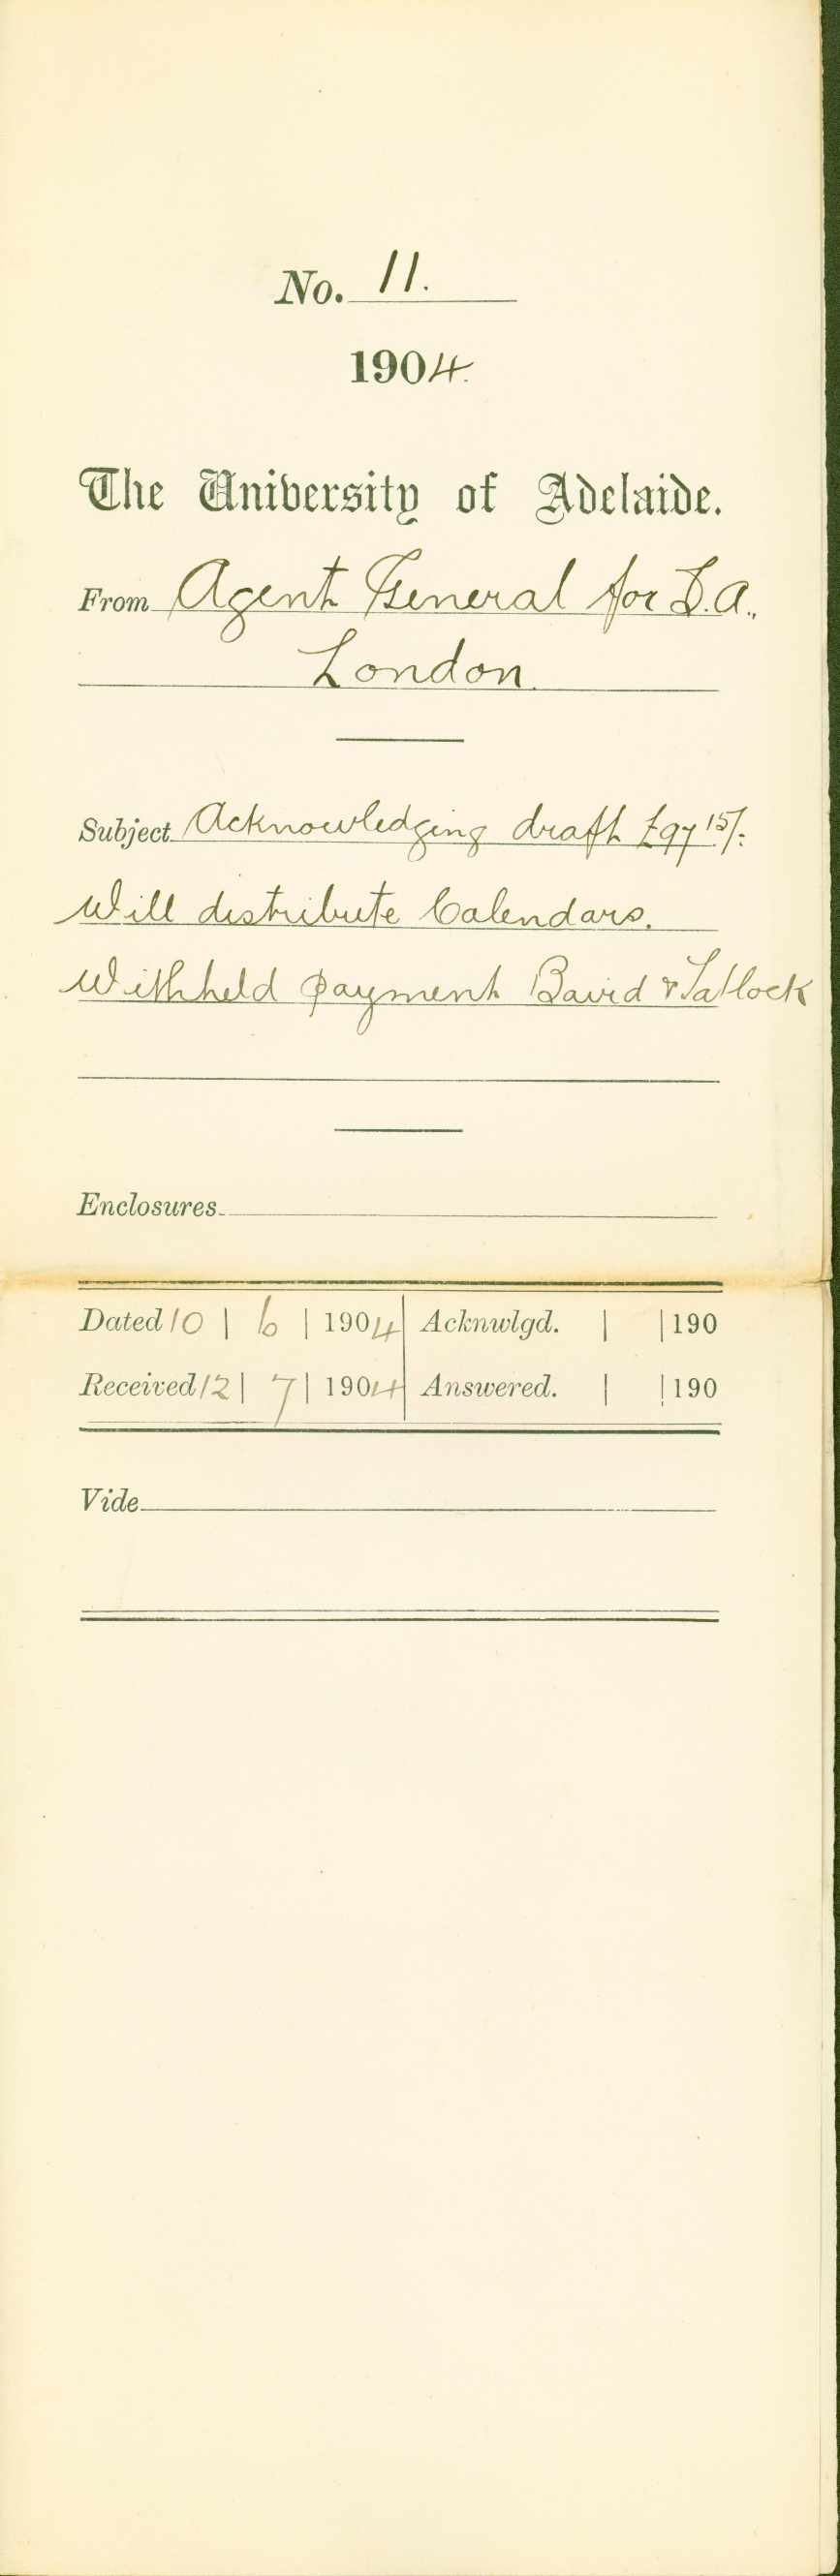 No. 11.
1904.
The University of Adelaide.
From Agent General for S.A.,
London.
Subject Acknowledging draft £97 15/-
Will distribute Calendars.
Withheld payment Baird & Tatlock
Enclosures
Dated 10 | 6 | 1904 Acknwlgd. | | 190
Received 12 | 7 | 1904 Answered. | | 190
Vide